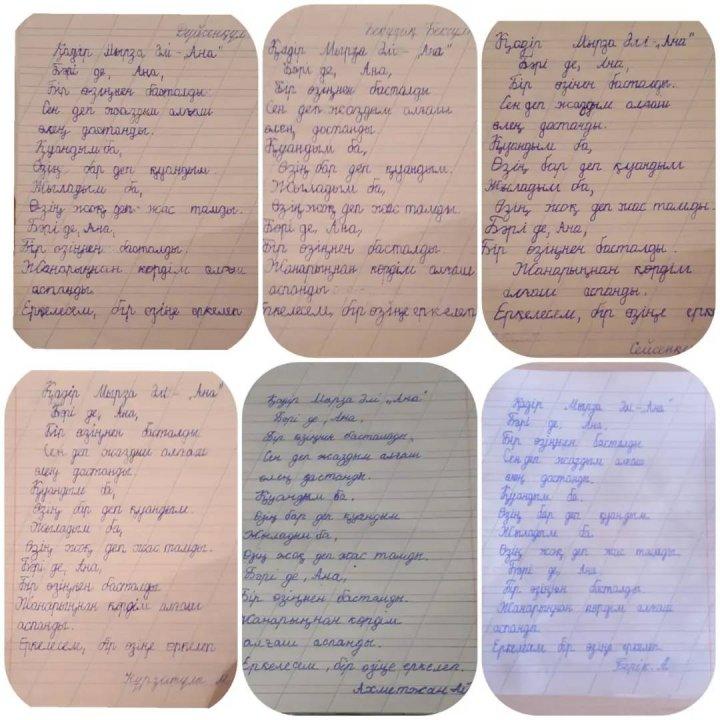 Дүйсенқұл
Қадір Мырза Әлі - „Ана"
Бәрі де, Ана,
Бір өзіңнен басталды.
Сен деп жаздым алғаш
өлең дастанды.
Қуандым ба,
Өзің бар деп қуандым.
Жыладым ба,
Өзің жоқ деп жас тамды.
Бәрі де, Ана,
Бір өзіңнен басталды.
Жанарыңнан көрдім алғаш
аспанды
Еркелесем, бір өзіңе еркелеп
Қадір Мырза Әлі - „Ана"
Бәрі де, Ана,
Бір өзіңнен басталды
Сен деп жаздым алғаш
өлең дастанды.
Қуандым ба,
Өзің бар деп қуандым.
Жыладым ба,
Өзің жоқ деп жас тамды.
Бәрі де, Ана,
Бір өзіңнен басталды.
Жанарыңнан көрдім алғаш
аспанды
Еркелесем, бір өзіңе еркелеп
Қадір Мырза Әлі - „Ана"
Бәрі де, Ана,
Бір өзінен басталды.
Сен деп жаздым алғаш
өлең дастанды.
Қуандым ба,
Өзің бар деп қуандым
Жыладым ба,
Өзің жоқ деп жас тамды.
Бәрі де, Ана,
Бір өзіңнен басталды.
Жанарыңнан көрдім
алғаш аспанды.
Еркелесем, бір өзіңе ерк
Сейсенке
Қадір Мырза Әлі - „Ана"
Бәрі де, Ана,
Бір өзіңнен басталды
Сен деп жаздым алғаш
өлең дастанды.
Қуандым ба,
Өзің бар деп қуандым.
Жыладым ба,
Өзің жоқ деп жас тамды.
Бәрі де, Ана,
Бір өзіңнен басталды
Жанарыңнан көрдім алғаш
аспанды.
Еркелесем, бір өзіңе еркелеп
Қадір Мырза Әлі „Ана"
Бәрі де, Ана,
Бір өзіңнен басталды,
Сен деп жаздым алғаш
өлең дастанды.
Қуандым ба.
Өзің бар деп қуандым
Жыладым ба,
Өзің жоқ деп жас тамды.
Бәрі де, Ана,
Бір өзіңнен басталды.
Жанарыңнан көрдім
алғаш аспанды.
Еркелесем, бір өзіңе еркелеп.
Ахметжан
Қадір Мырза Әлі - Ана"
Бәрі де, Ана,
Бір өзіңнен басталды
Сен деп жаздым алғаш
өлең дастанды.
Қуандым ба.
Өзің бар деп қуандым.
Жыладым ба
Өзің жоқ деп жас тамды.
Бәрі де, Ана
Бір өзіңнен басталды.
Жанарыңнан көрдім алғаш
аспанды
Еркелесем бір өзіңе еркелеп.
Берік. А.